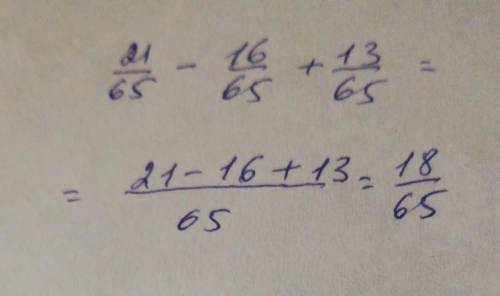 21/65 - 16/65 + 13/65 =
= (21 - 16 + 13)/65 = 18/65